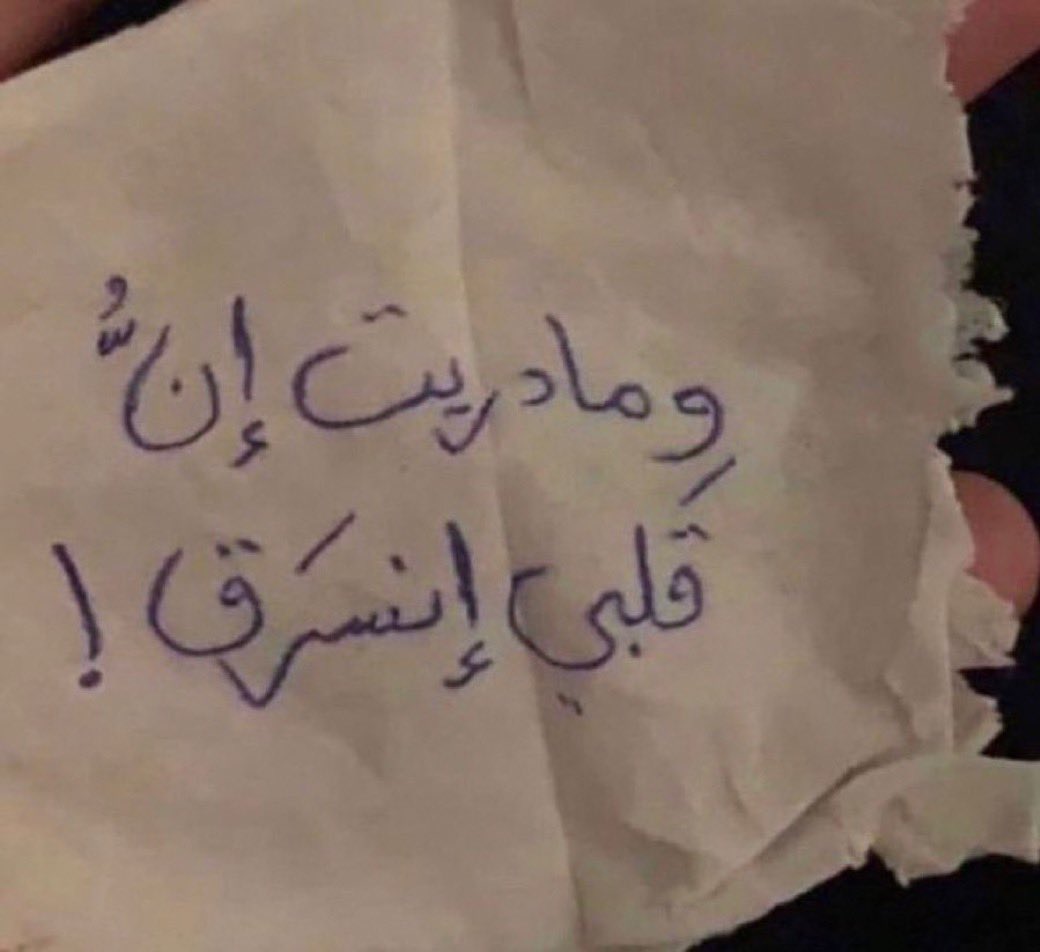 وما دريت إنُّ
قَلبي إنسَرق !